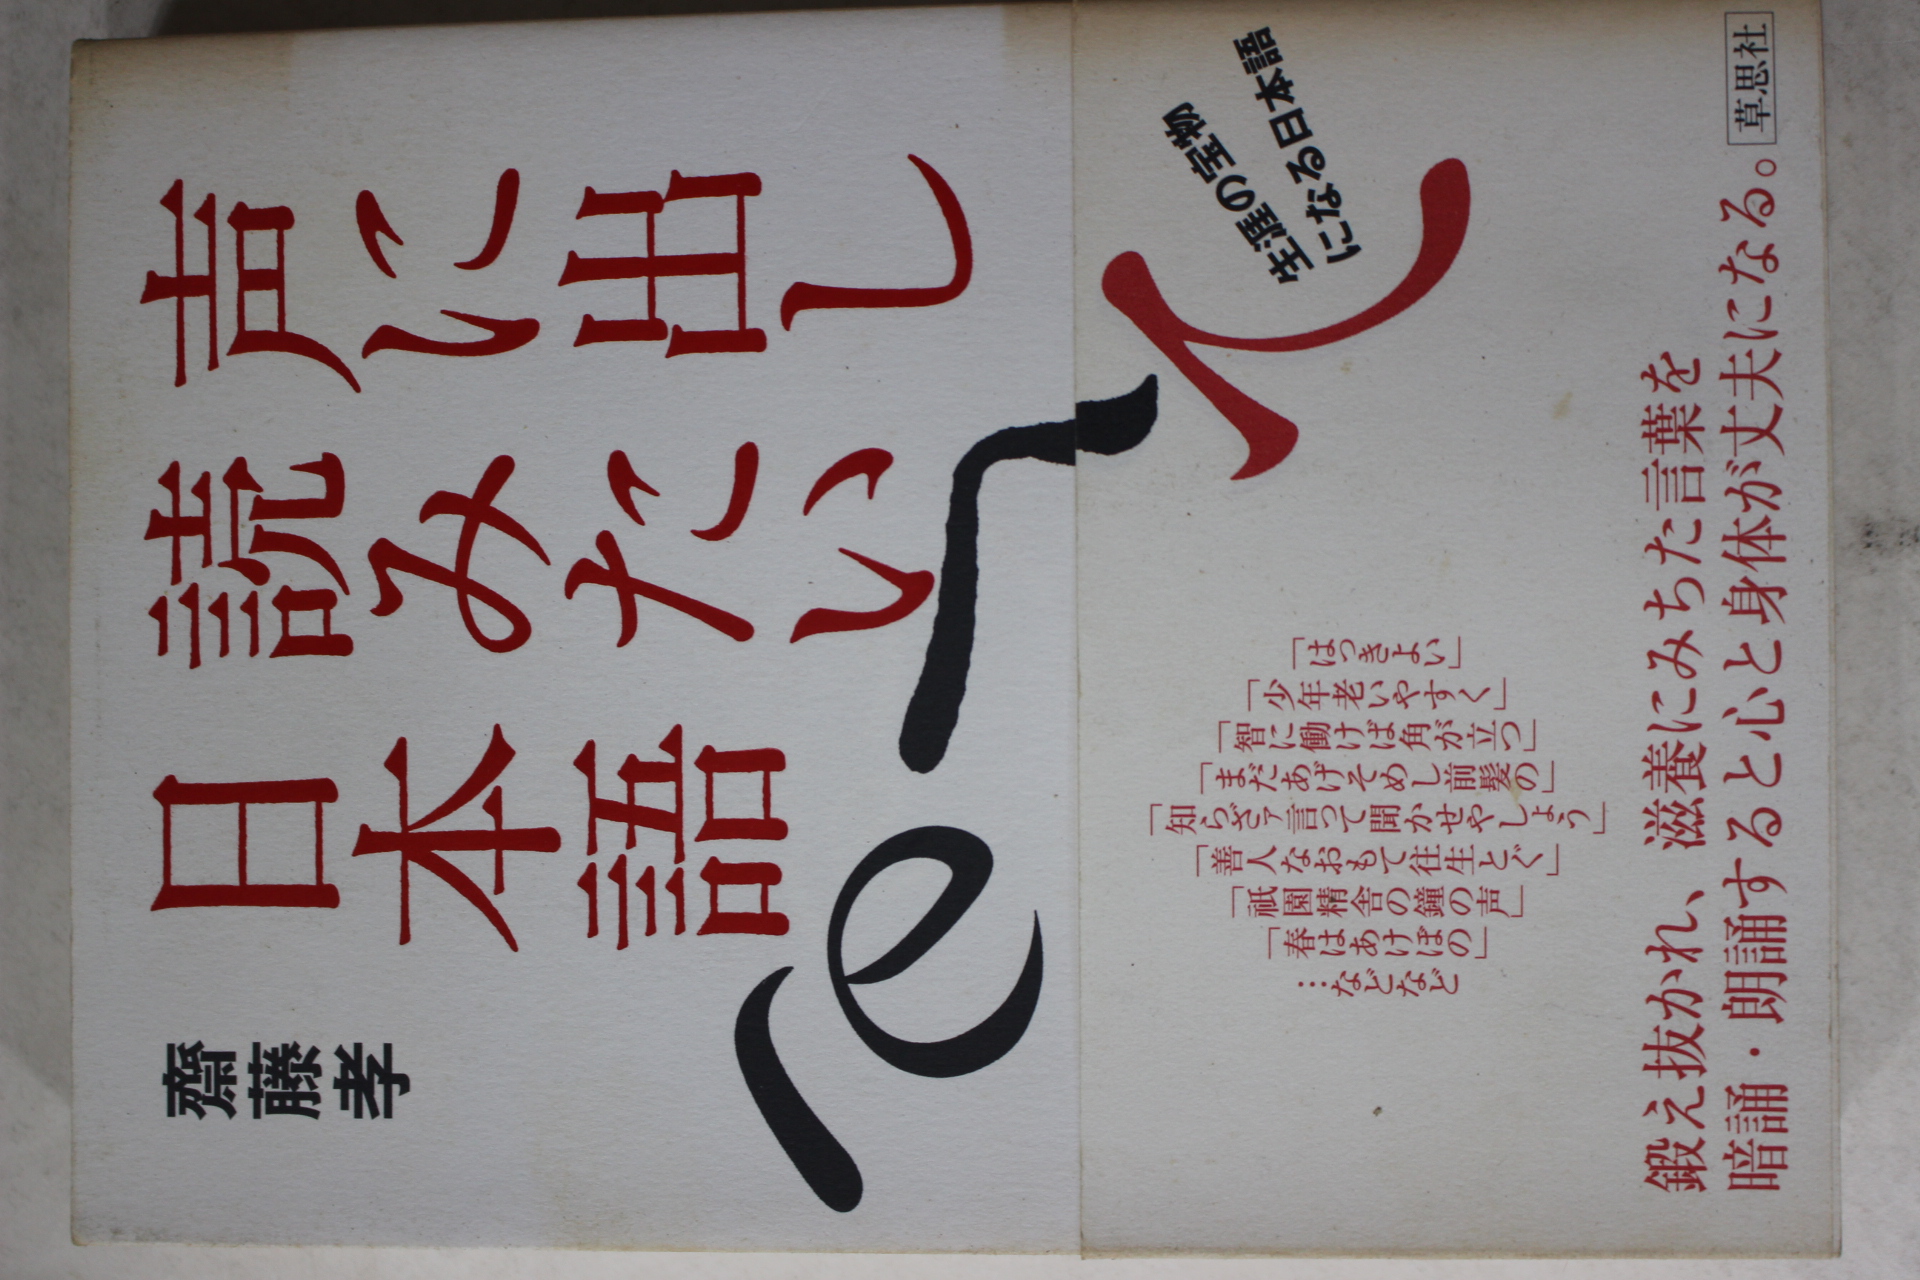 声に出して
読みたい
日本語
齋藤孝
生涯の宝物
になる日本語
「はっきよい」
「少年老いやすく」
「智に働けば角が立つ」
「まだあげそめし前髪の」
「知らざァ言って聞かせやしょう」
「善人なおもて往生とぐ」
「祇園精舎の鐘の声」
「春はあけぼの」
…などなど
鍛え抜かれ、滋養にみちた言葉を
暗誦・朗誦すると心と身体が丈夫になる。
草思社